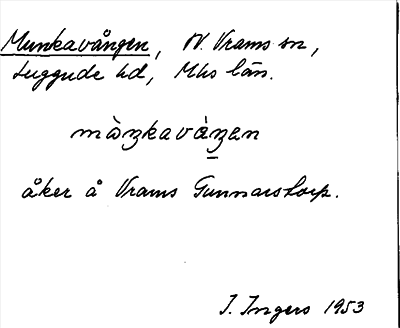 Munkavången, N. Vrams sn,
Luggude hd, Mhs län.
màŋkavàŋen
åker å Vrams Gunnarstorp.
I. Ingers 1953